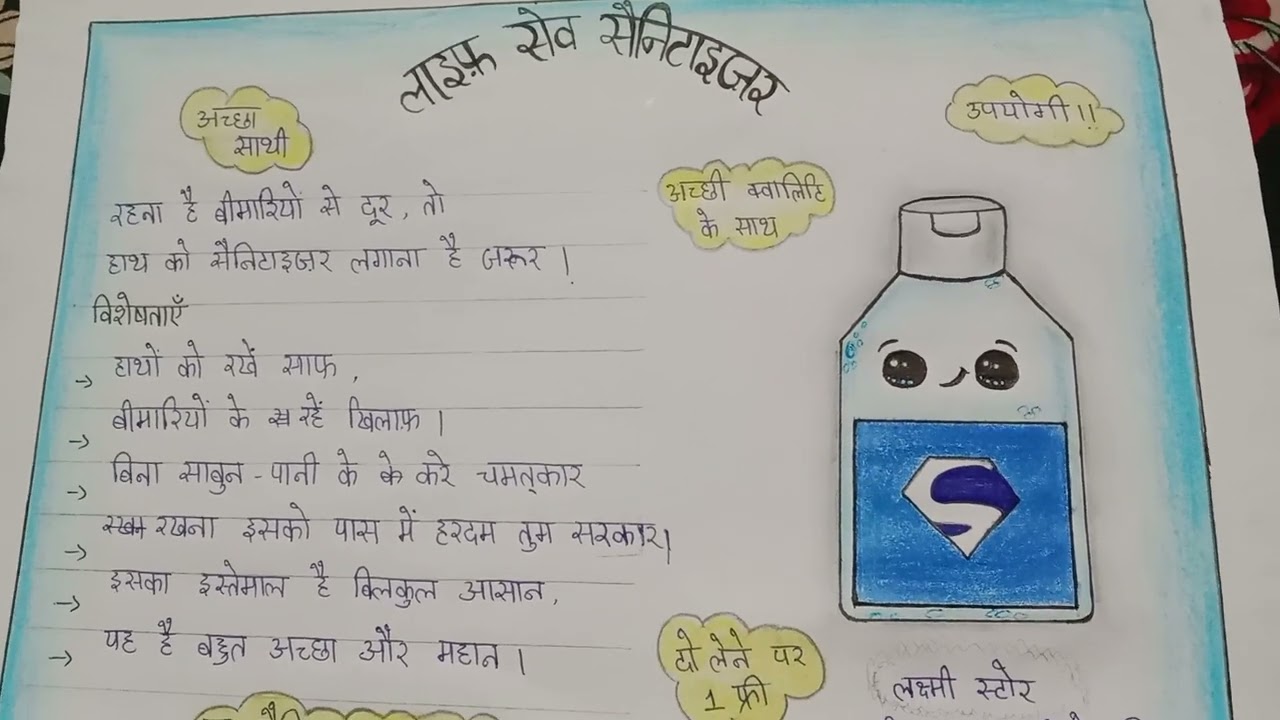 लाइफ़ सेव सैनिटाइज़र
अच्छा
साथी
उपयोगी!!
अच्छी क्वालिटि
के साथ
रहना है बीमारियों से दूर, तो
हाथ को सैनिटाइज़र लगाना है जरूर।
विशेषताएँ
→ हाथों को रखें साफ,
→ बीमारियों के रहें खिलाफ़।
→ बिना साबुन-पानी के के करे चमत्कार
→ रखना इसको पास में हरदम तुम सरकार।
→ इसका इस्तेमाल है बिलकुल आसान,
→ यह है बहुत अच्छा और महान।
S
दो लेने पर
1 फ्री
लक्ष्मी स्टोर